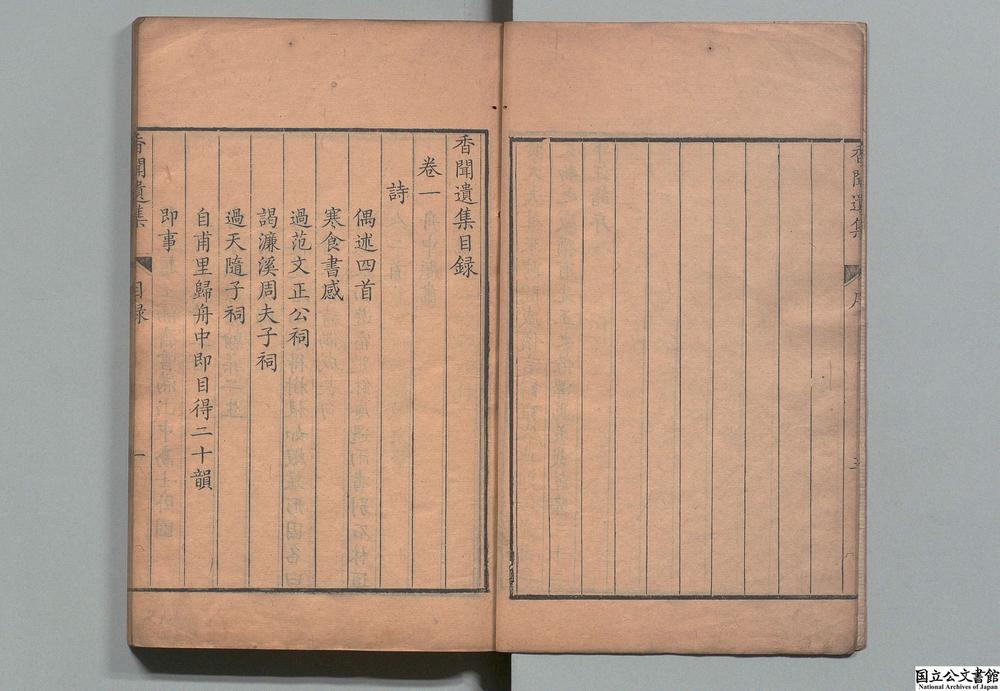 香聞遺集
序
香聞遺集目録
卷一
詩
偶述四首
寒食書感
過范文正公祠
謁濂溪周夫子祠
過天隨子祠
自甫里歸舟中即目得二十韻
即事
香聞遺集
目録
一
国立公文書館
National Archives of Japan